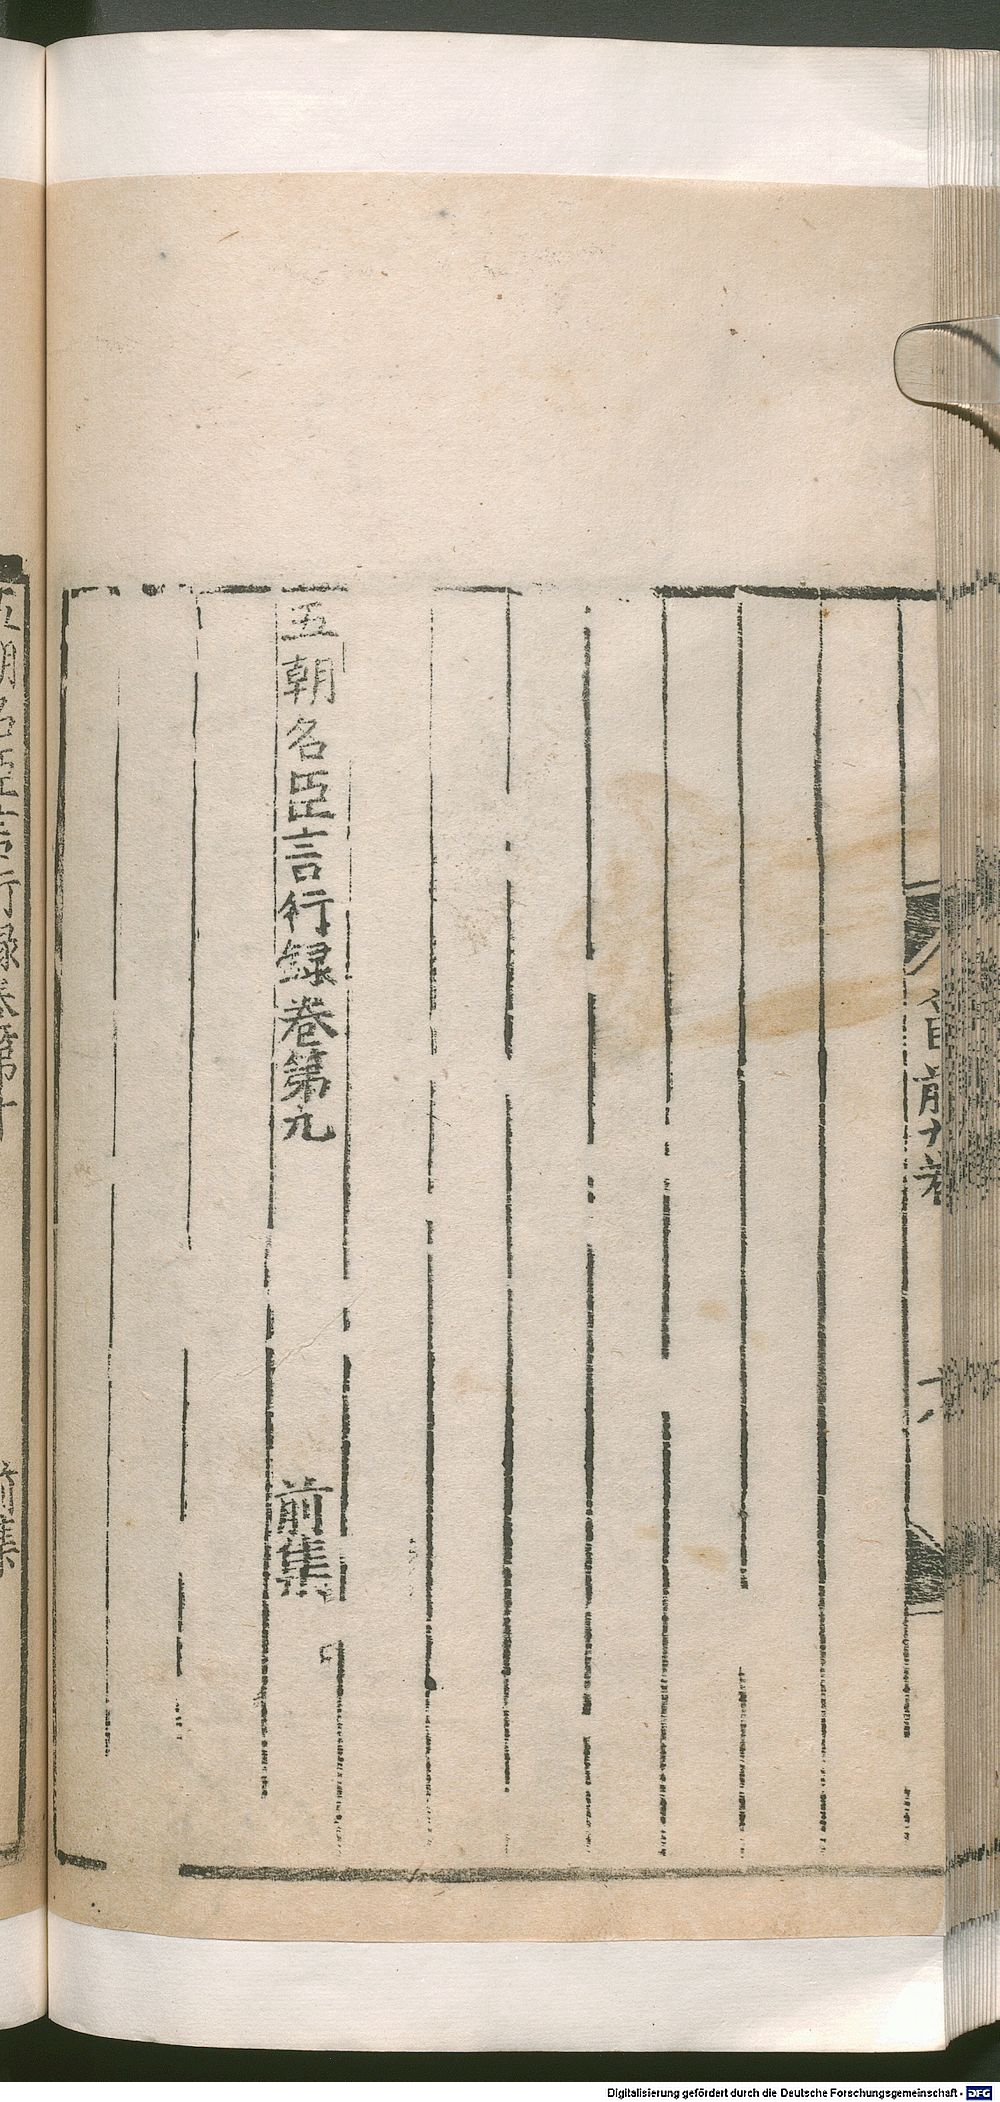 前九卷
五朝名臣言行録卷第九 前集
五朝名臣言行録卷第十 前集
Digitalisierung gefördert durch die Deutsche Forschungsgemeinschaft - DFG